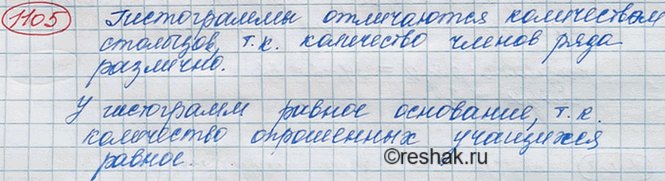 1105 Гистограммы отличаются количеством
столбцов, т.к. количество членов ряда
различно.
У гистограмм равное основание, т.к.
количество опрошенных учащихся
равное.
©reshak.ru